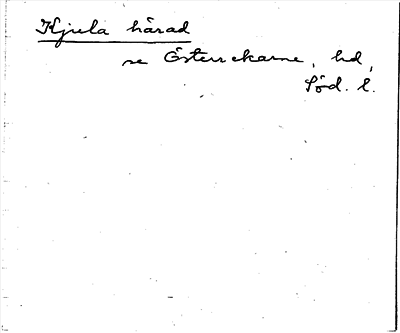 Kjula härad
se Österrekarne, hd,
Söd. l.